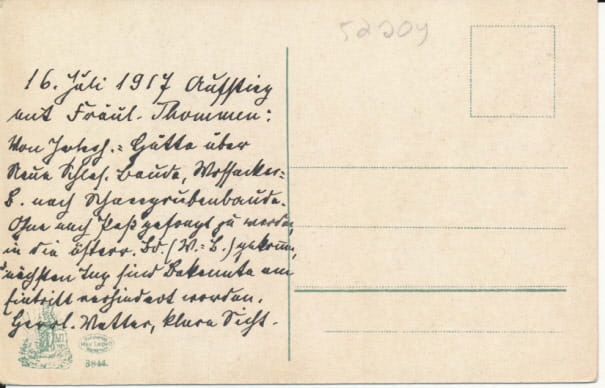 52204
16. Juli 1917 Aufstieg
mit Fräul. Thommen:
Von Josef.-Hütte über
Neue Schles. Baude, Wossecker-
B. nach Schneegrubenbaude.
Ohne nach Paß gefragt zu werden
in die österr. Bd. (W.-B.) gekomm,
nächsten Tag sind Bekannte am
Eintritt verhindert worden.
Herrl. Wetter, klare Sicht.
3844